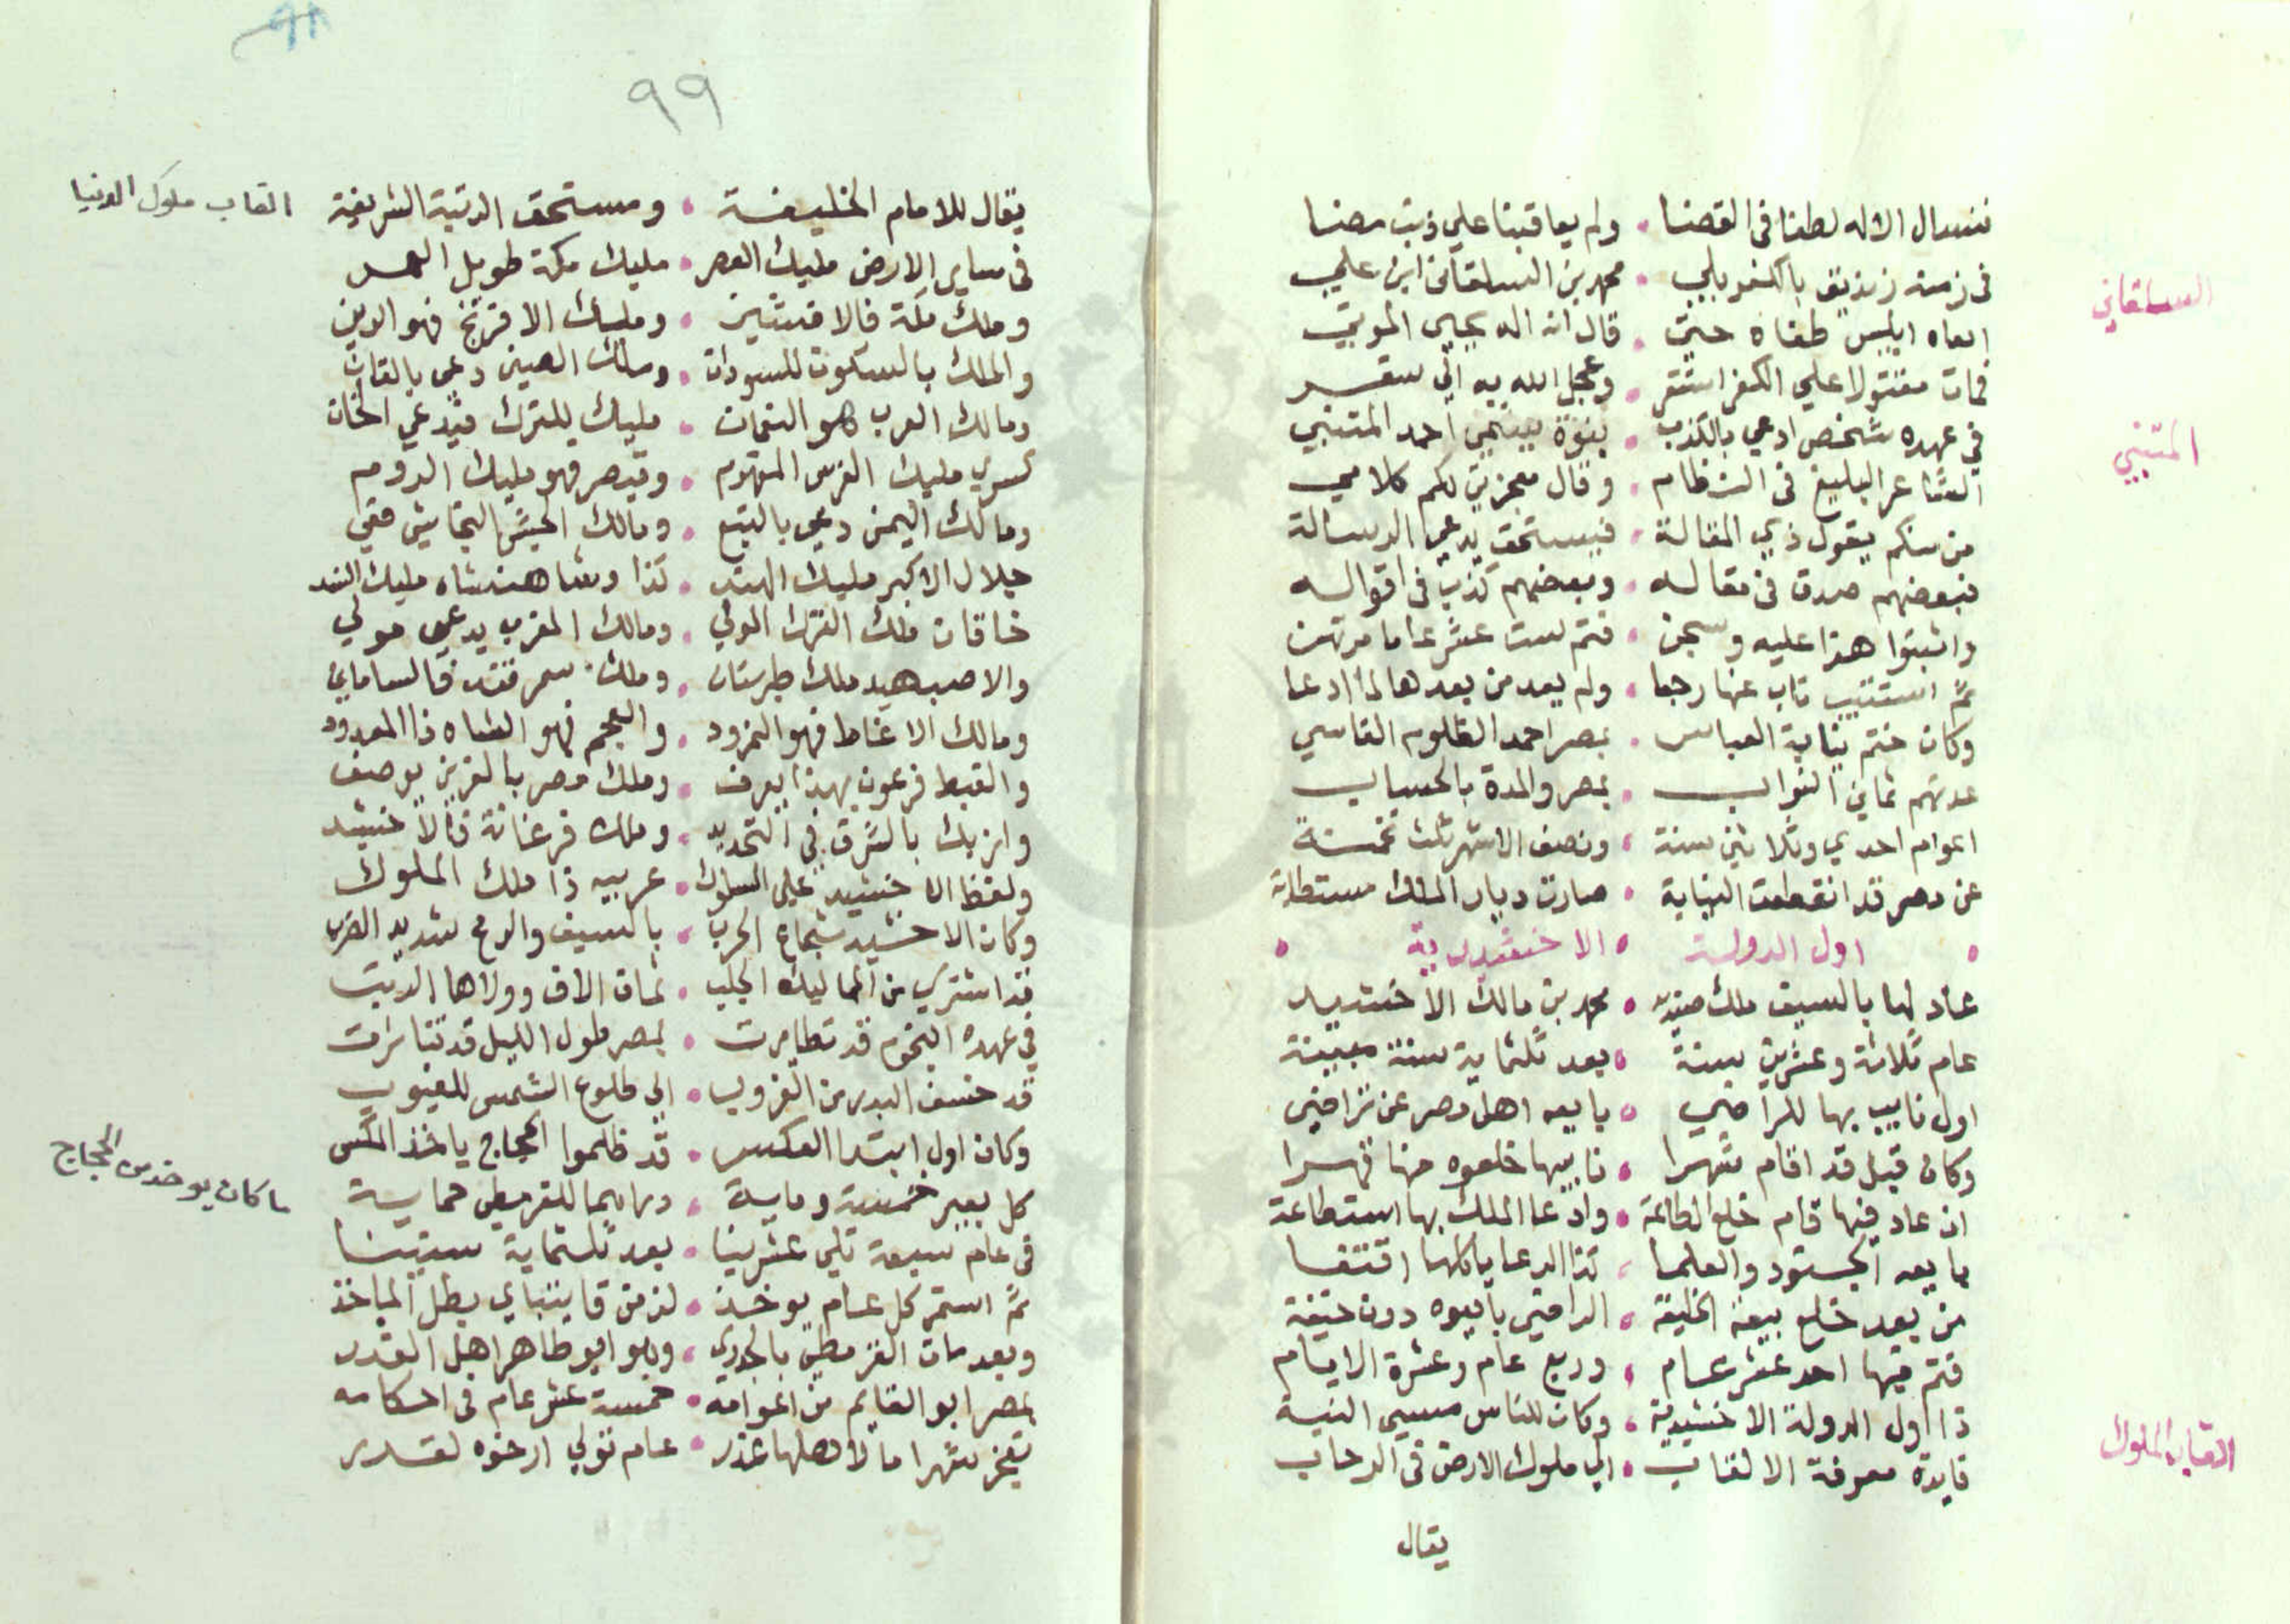 فنسال الاله لطفا في القضا • ولم يعاقبنا علي ذنب مضا
في زمنه زنديق بالكفر بلي • محمد بن السلقاني ابن علي
السلقاني
اغواه ابليس طغاه حتي • قال انه اله يحيي الموتي
فمات مقتولا علي الكفر استقر • وعجل الله به الي سقر
في عهده شخص ادعي بالكذب • بنوة يسمي احمد المتنبي
المتنبي
الشاعر البليغ في النظام • وقال معجزتي لكم كلامي
من منكم يقول ذي المقالة • فيستحق يدعي الرسالة
فبعضهم صدق في مقاله • وبعضهم كذب في اقواله
واثبتوا هذا عليه وسجن • فتم ست عشر عاما مرتهن
ثم استتيب تاب عنها رجعا • ولم يعد من بعدها لما ادعا
وكان ختم نيابة العباس • بمصر احمد الظلوم القاسي
عدتهم ثماني النواب • بمصر والمدة بالحساب
اعوام احدي وثلاثين سنة • ونصف الاشهر ثلث خمسة
عن مصر قد انقطعت النيابة • صارت ديار الملك مستطابة
• اول الدولة • الاخشيدية •
عاد لها بالسيف ملك صيد • محمد بن مالك الاخشيد
عام ثلاثة وعشرين سنة • بعد ثلثماية سنة مبينة
اول نايب بها للراضي • بايعه اهل مصر عن تراضي
وكان قبل قد اقام شهرا • نايبها خلعوه منها قهرا
ان عاد فيها قام خلع الطاعة • وادعا الملك بها استطاعة
بايعه الجنود والعلما • كذا الرعايا كلها اقتفا
من بعد خلع بيعة الخليفة • الراضي بايعوه دون خيفة
فتم فيها احد عشر عام • وربع عام وعشرة الايام
ذا اول الدولة الاخشيدية • وكان للناس مسيي النية
فايدة معرفة الالقاب • الي ملوك الارض في الرحاب
القاب الملوك
يقال
٩٩
يقال للامام الخليفة • ومستحق الرتبة الشريفة
القاب ملوك الدنيا
في ساير الارض مليك العصر • مليك مكة طويل العمر
وملك مكة فالافشين • ومليك الافرنج فهو الدين
والملك بالسكون للسودان • وملك الصين دعي بالقان
ومالك العرب هو النعمان • مليك للترك فيدعي الخان
كسري مليك الفرس المفهوم • وقيصر فهو مليك الروم
ومالك اليمن دعي بالتبع • ومالك الحبش النجاشي فعي
جلال الاكبر مليك الهند • كذا وشاهنشاه مليك السند
خاقان ملك الترك الولي • ومالك المغرب يدعي مولي
والاصبهيد ملك طبرستان • وملك سمرقند فالساماني
ومالك الانماط فهو النمرود • والعجم فهو الشاه ذا المعدود
والقبط فرعون بهذا يعرف • وملك مصر بالعزيز يوصف
وازبك بالشرق في التحديد • وملك فرغانة فالاخشيد
ولفظ الاخشيد علي السلوك • عربيه ذا ملك الملوك
وكان الاخشيد شجاع الحرب • بالسيف والرمح شديد الضرب
قد اشتري من المماليك الجلب • ثمان الاف وولاها الرتب
في عهده النجوم قد تطايرت • بمصر طول الليل قد تناثرت
قد خسف البدر من الغروب • الي طلوع الشمس للمغيوب
وكان اول ابتدا العكس • قد ظلموا الحجاج ياخذ المكس
ما كان يوخذ من الحجاج
كل بعير خمسة وماية • دراهما للقرمطي حماية
في عام سبعة تلي عشرينا • بعد ثلثماية سنينا
ثم استمر كل عام يوخذ • لزمن قايتباي بطل الماخذ
وبعد مات القرمطي بالجدري • وهو ابو طاهر اهل القدر
بمصر ابو القايم من اعوامه • خمسة عشر عام في احكامه
شهرا • عام تولي ارخوه لقدر